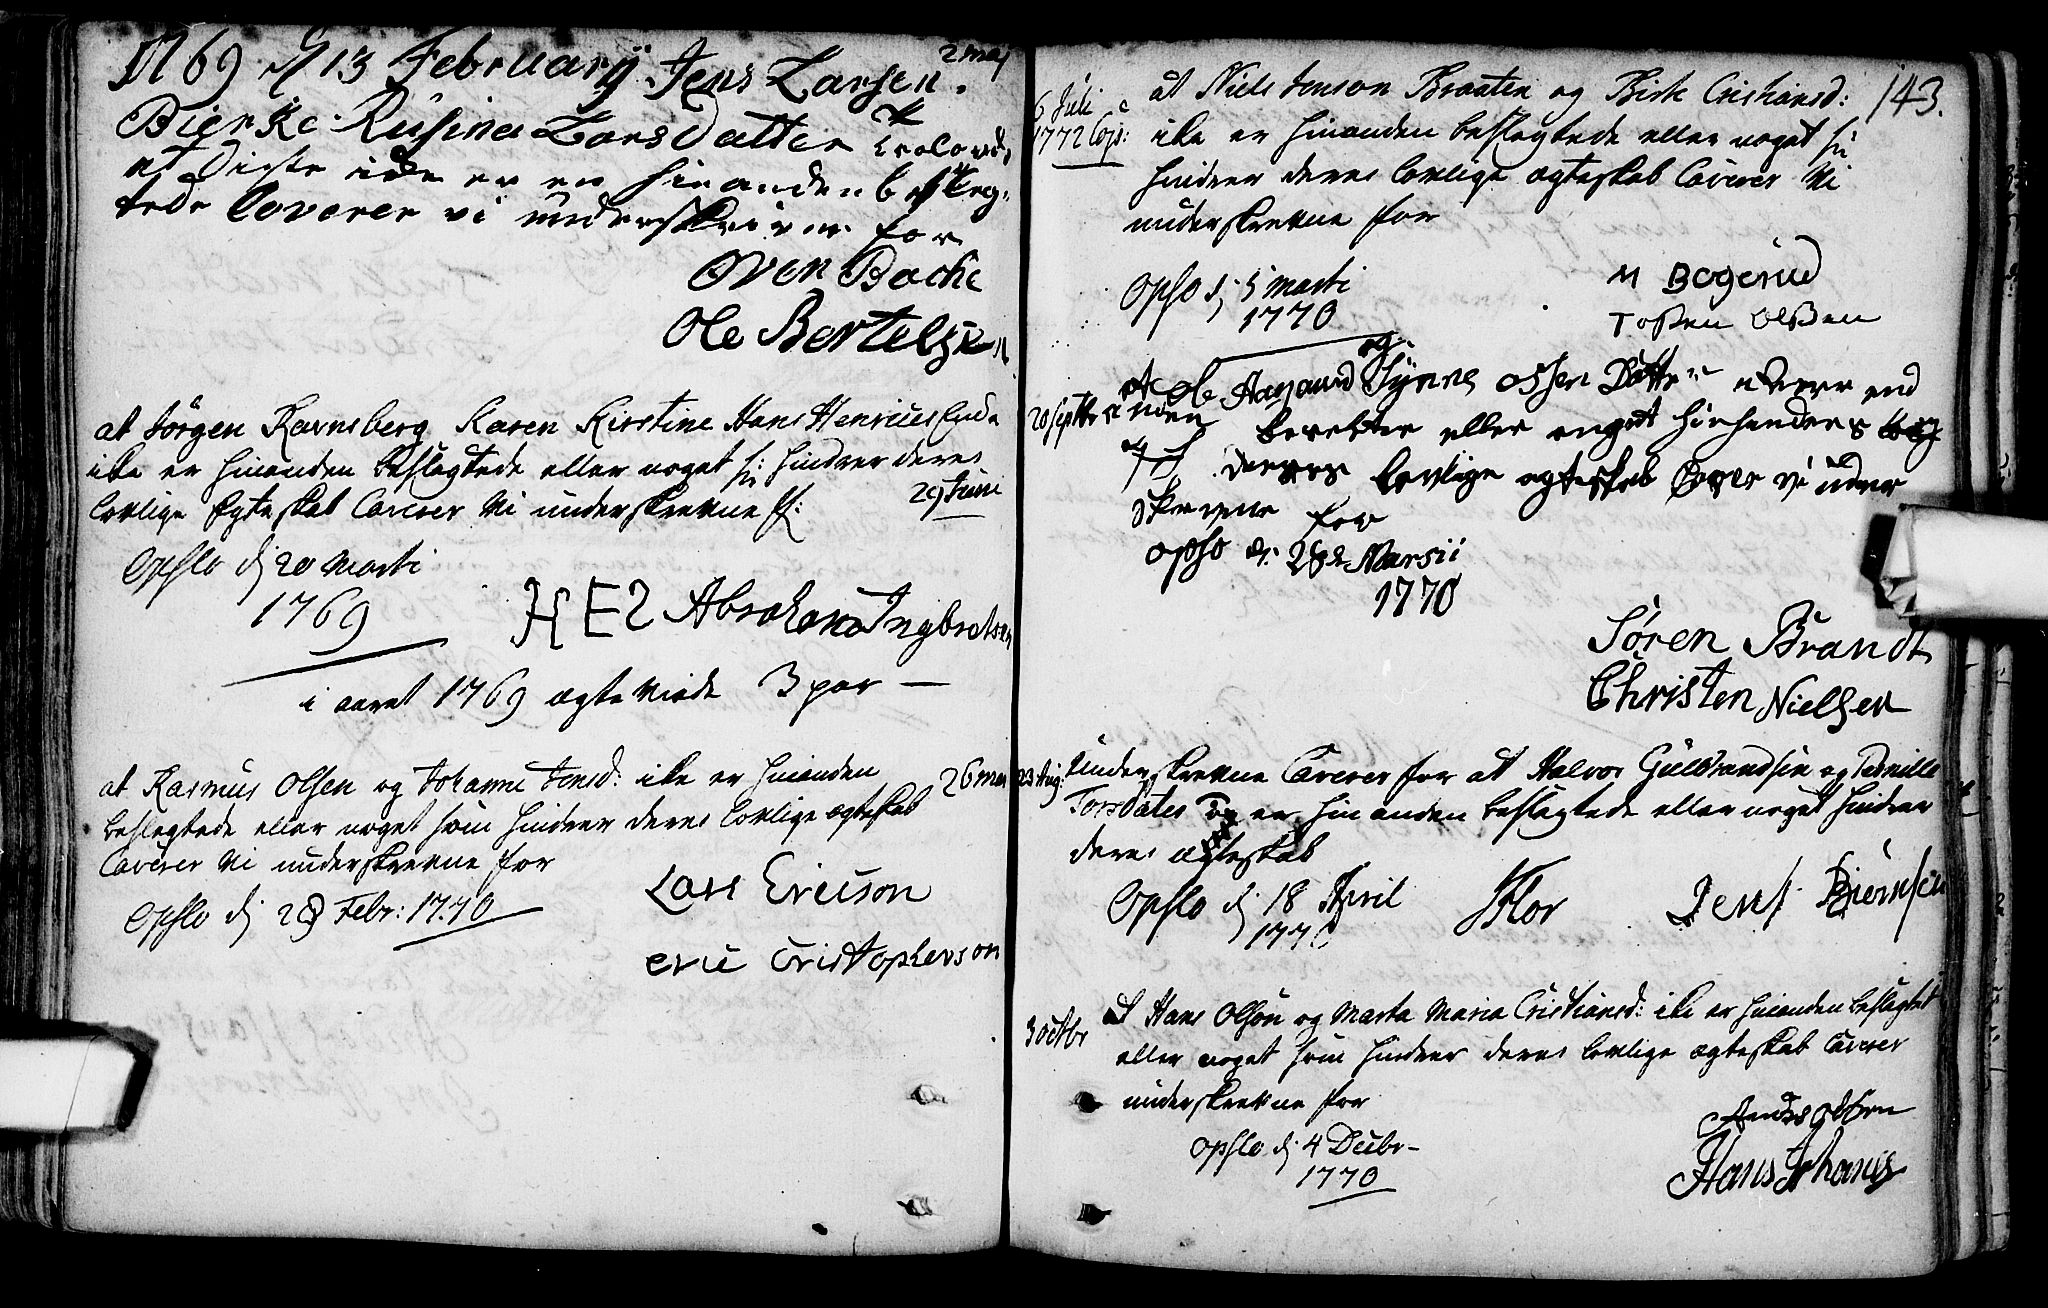 1769 d 13 February Jens Larsen. 2 maj
Bierke Rusina Larsdatter
at Disse ike er en hinanden besleg-
tede Caverer vi underskriver for
Oven Bache
Ole Bertelsen
at Jørgen Ravnsberg Karen Kirstine Hans Henrics
ike er hinanden beslegtede eller noget hindrer deres
lovlige Egteskab Caverer Vi underskrevne f: 29 Juni
Opslo dj 20 Marti
1769
HES Abraham Ingbretsen
i aaret 1769 ægteviede 3 par —
at Rasmus Olsen og Johanne Jensd: ike er hinanden 26 mar
beslegtede eller noget som hindrer deres lovlige ægteskab
Caverer Vi underskrevne for
Opslo dj 28 Febr: 1770
Lars Ericson
eric Cristopherson
143.
6 Juli
1772 Cop:
at Niels Jenson Braaten og Birte Cristiansd:
ike er hinanden beslegtede eller noget
hindrer deres lovlige ægteskab Caverer Vi
underskrevne for
Opslo dj 5 Marti
1770
M Bogerud
Tosten Olssen
20 septbr
at Ole Aagaard og Synne Dotter
eller noget
deres lovlige egteskab Vi under
skrevne for
opslo d: 28 Marsii
1770
Søren Brandt
Christen Nielsen
23 Aug:
Underskrevne Caverer for at Halvor Gulbrandsen og Pernille
Torsdater er hinanden beslegtede eller noget hindrer
deres ægteskab
Opslo dj 18 April
1770
Flor
Jens Biørnsen
3 octbr
at Hans Olson og Marta Maria Cristiansd: ike er hinanden beslegtet
eller noget som hindrer deres lovlige ægteskab Caverer
underskrevne for
opslo dj 4 Decbr-
1770
Anders olsen
Hans Johans